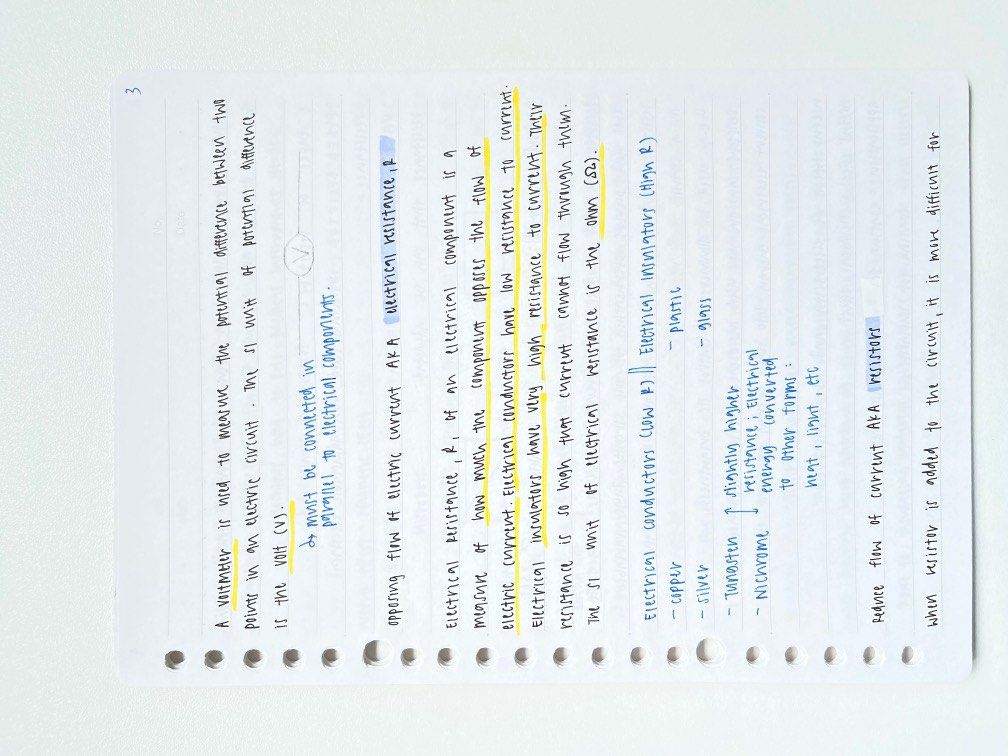 3
A voltmeter is used to measure the potential difference between two
points in an electric circuit. The SI unit of potential difference
is the volt (V).
V
↳ must be connected in
parallel to electrical components.
opposing flow of electric current AKA electrical resistance, R
Electrical resistance, R, of an electrical component is a
measure of how much the component opposes the flow of
electric current. Electrical conductors have low resistance to current.
Electrical insulators have very high resistance to current. Their
resistance is so high that current cannot flow through them.
The SI unit of electrical resistance is the ohm (Ω).
Electrical conductors (low R) || Electrical insulators (High R)
- copper
- silver
- Tungsten
- Nichrome
slightly higher
resistance; Electrical
energy converted
to other forms:
heat, light, etc
- plastic
- glass
Reduce flow of current AKA resistors
When resistor is added to the circuit, it is more difficult for